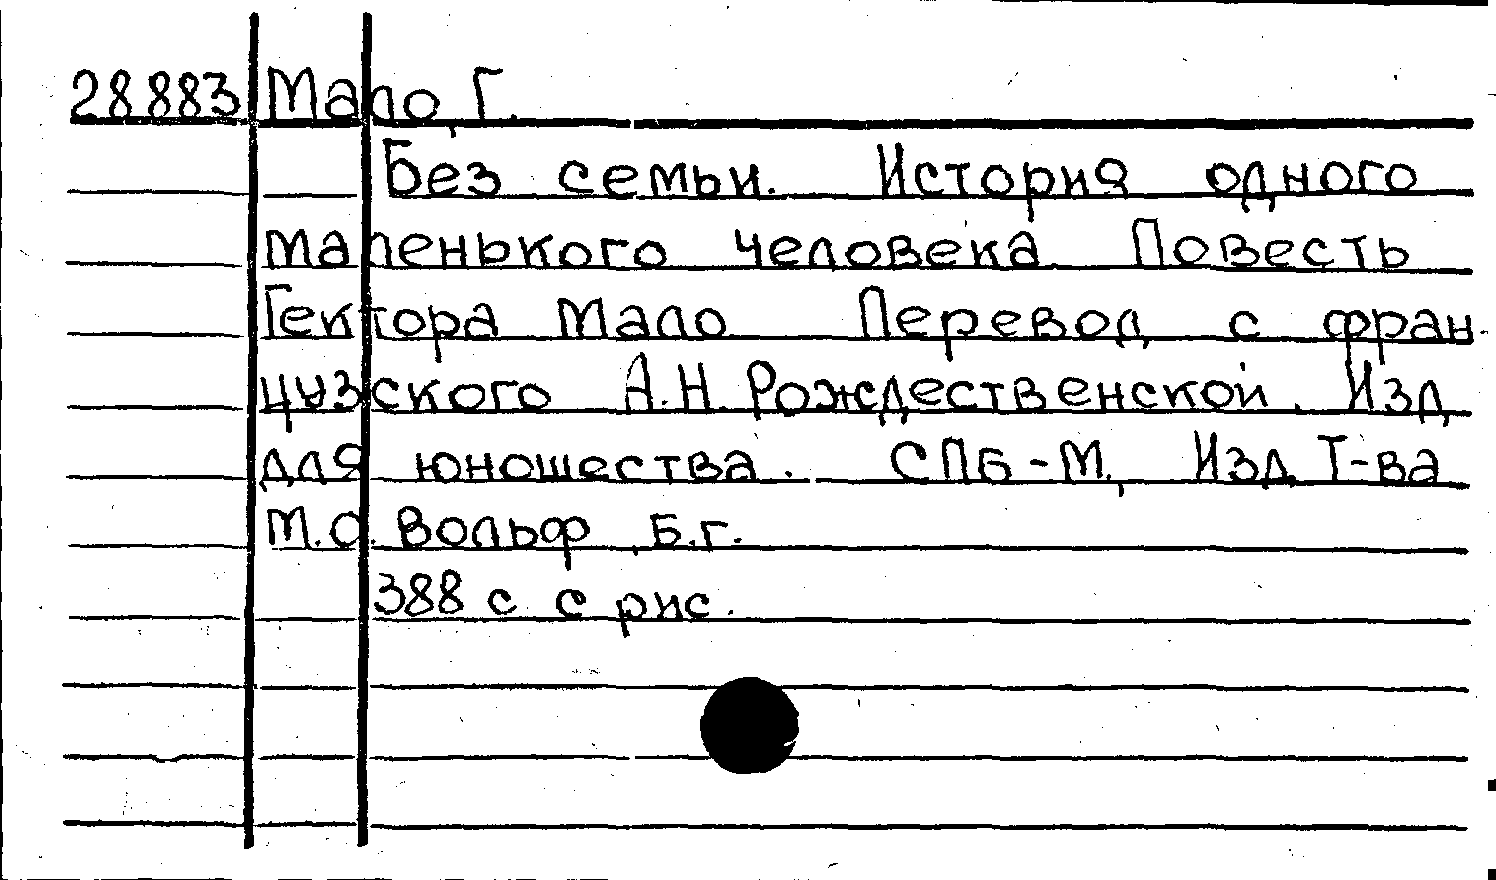 28883 Мало, Г.
Без семьи. История одного
маленького человека. Повесть
Гектора Мало Перевод с фран-
цузского А.Н. Рождественской. Изд
для юношества. СПБ-М., Изд. Т-ва
М.О. Вольф, Б.г.
388 с. с рис.